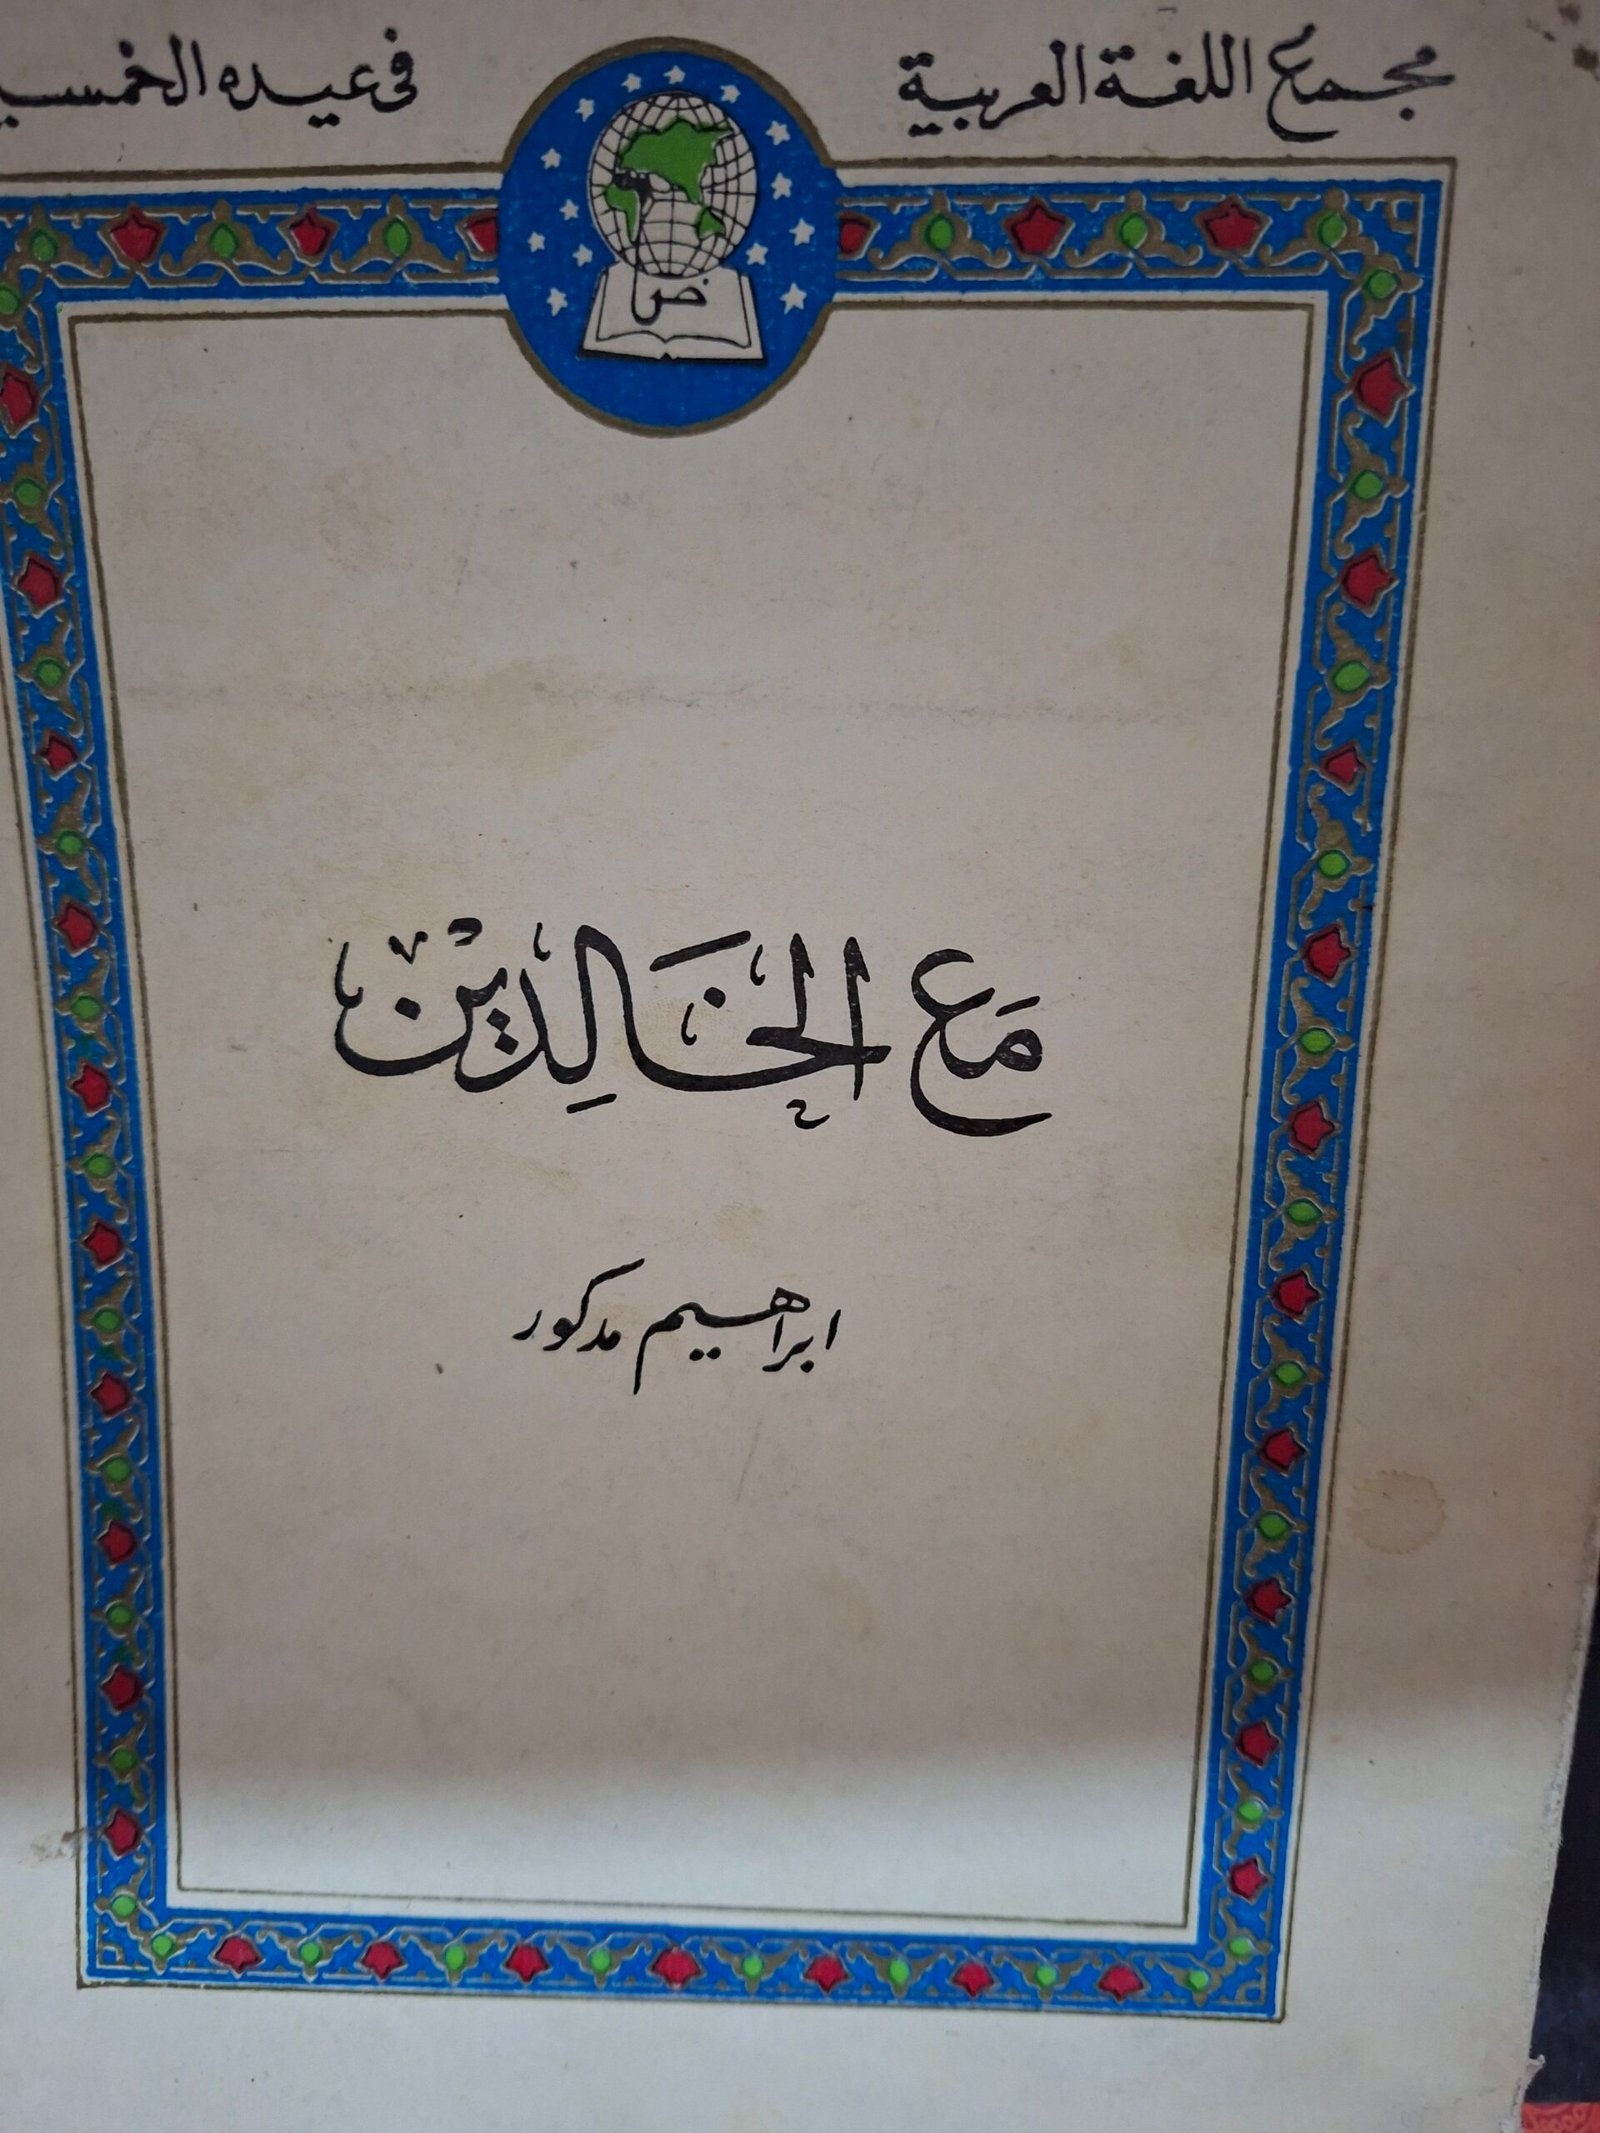 مجمع اللغة العربية
في عيده
ض
مَع الخَالِدين
ابراهيم مدكور